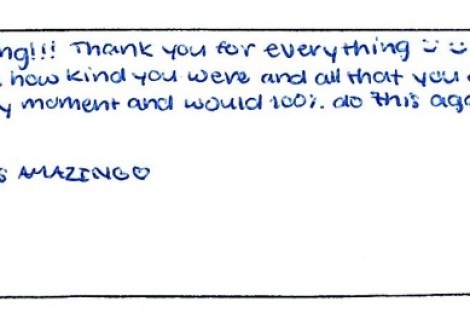 ng!!! Thank you for everything 
how kind you were and all that you
y moment and would 100% do this aga
s AMAZING♡